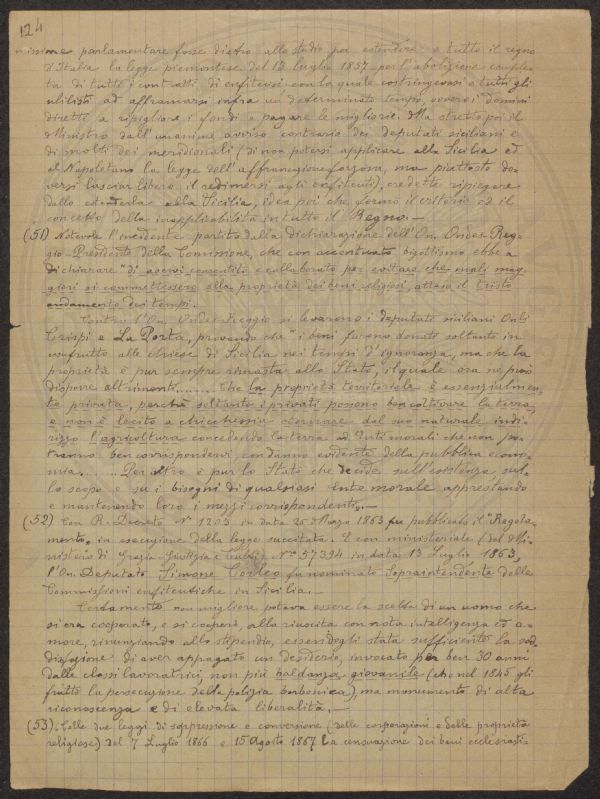 124
missione parlamentare fosse dietro allo studio per estendere a tutto il regno
d'Italia la legge piemontese del 13 Luglio 1857 per l'abolizione comple-
ta di tutti i contratti di enfiteusi con la quale costringevasi a tutti gli
utilisti ad affrancarsi infra un determinato tempo, ovvero i domini
diretti a ripigliare i fondi e pagare le migliorie. Ma stretto poi il
Ministro dall'unanime avviso contrario dei deputati siciliani e
di molti dei meridionali (di non potersi applicare alla Sicilia ed
al Napoletano la legge dell'affrancazione forzosa, ma piuttosto do-
versi lasciar libero il redimersi agli enfiteuti), credette ripiegare
dallo estenderla alla Sicilia, idea poi che formò il criterio ed il
concetto della inapplicabilità in tutto il Regno.—
(51) Notevole l'incidente partito dalla dichiarazione dell'On. Ondes-Reg-
gio - Presidente della Commissione, che con accentuato bigottismo ebbe a
dichiarare "di avervi consentito e collaborato per evitare che mali mag-
giori si commettessero alla proprietà dei beni religiosi, attesa il tristo
andamento dei tempi.
Contro l'On. Ondes-Reggio si levarono i deputati siciliani On.li
Crispi e La Porta, provando che "i beni furono donati soltanto in
usufrutto alle chiese di Sicilia nei tempi d'ignoranza, ma che la
proprietà è pur sempre rimasta allo Stato, il quale ora ne può
disporre altrimenti........ Che la proprietà territoriale è essenzialmen-
te privata, perché soltanto i privati possono ben coltivare la terra,
e non è lecito a chicchessia storcere dal suo naturale indi-
rizzo l'agricoltura concedendo la terra ad Enti morali che non po-
tranno ben corrispondervi con danno evidente della pubblica econo-
mia.... Per altro è pur lo Stato che decide sull'esistenza sul-
lo scopo e su i bisogni di qualsiasi ente morale apprestando
e mantenendo loro i mezzi corrispondenti.—
(52) Con R. Decreto N° 1203 in data 26 Marzo 1863 fu pubblicato il "Regola-
mento" in esecuzione della legge succitata. E con ministeriale (dal Mi-
nistero di Grazia Giustizia e Culti) N° 57394 in data 13 Luglio 1863,
l'On. Deputato Simone Corleo fu nominato Sopraintendente delle
Commissioni enfiteutiche in Sicilia.—
Certamente non migliore poteva essere la scelta di un uomo che
si era cooperato, e si cooperò, alla riuscita con nota intelligenza ed a-
more, rinunziando allo stipendio, essendogli stata sufficiente la sod-
disfazione di aver appagato un desiderio, invocato per ben 30 anni
dalle classi lavoratrici, non più baldanza giovanile (che nel 1845 gli
fruttò la persecuzione della polizia borbonica), ma monumento di alta
riconoscenza e di elevata liberalità.—
(53) Colle due leggi di soppressione e conversione (delle corporazioni e delle proprietà
religiose) del 7 Luglio 1866 e 15 Agosto 1867 la censuazione dei beni ecclesiasti-